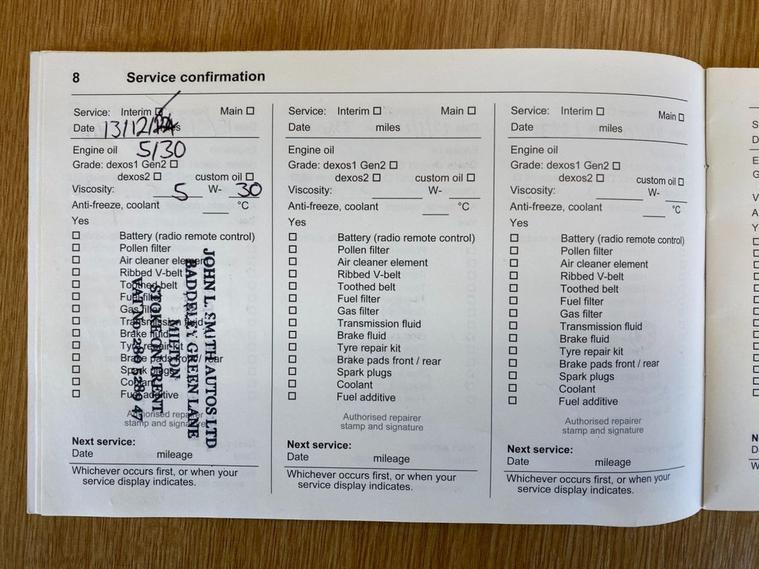 8 Service confirmation
Service: Interim Main
Date 13/12/
Engine oil 5/30
Grade: dexos1 Gen2
dexos2 custom oil
Viscosity: 5 W- 30
Anti-freeze, coolant °C
Yes
Battery (radio remote control)
Pollen filter
Air cleaner element
Ribbed V-belt
Toothed belt
Fuel filter
Gas filter
Transmission fluid
Brake fluid
Tyre repair kit
Brake pads front / rear
Spark plugs
Coolant
Fuel additive
Authorised repairer
stamp and signature
JOHN L. SMITH AUTOS LTD
BADDELEY GREEN LANE
MILTON
STOKE ON TRENT
VAT No 286 5289 47
Next service:
Date mileage
Whichever occurs first, or when your
service display indicates.
Service: Interim Main
Date miles
Engine oil
Grade: dexos1 Gen2
dexos2 custom oil
Viscosity: W-
Anti-freeze, coolant °C
Yes
Battery (radio remote control)
Pollen filter
Air cleaner element
Ribbed V-belt
Toothed belt
Fuel filter
Gas filter
Transmission fluid
Brake fluid
Tyre repair kit
Brake pads front / rear
Spark plugs
Coolant
Fuel additive
Authorised repairer
stamp and signature
Next service:
Date mileage
Whichever occurs first, or when your
service display indicates.
Service: Interim Main
Date miles
Engine oil
Grade: dexos1 Gen2
dexos2 custom oil
Viscosity: W-
Anti-freeze, coolant °C
Yes
Battery (radio remote control)
Pollen filter
Air cleaner element
Ribbed V-belt
Toothed belt
Fuel filter
Gas filter
Transmission fluid
Brake fluid
Tyre repair kit
Brake pads front / rear
Spark plugs
Coolant
Fuel additive
Authorised repairer
stamp and signature
Next service:
Date mileage
Whichever occurs first, or when your
service display indicates.